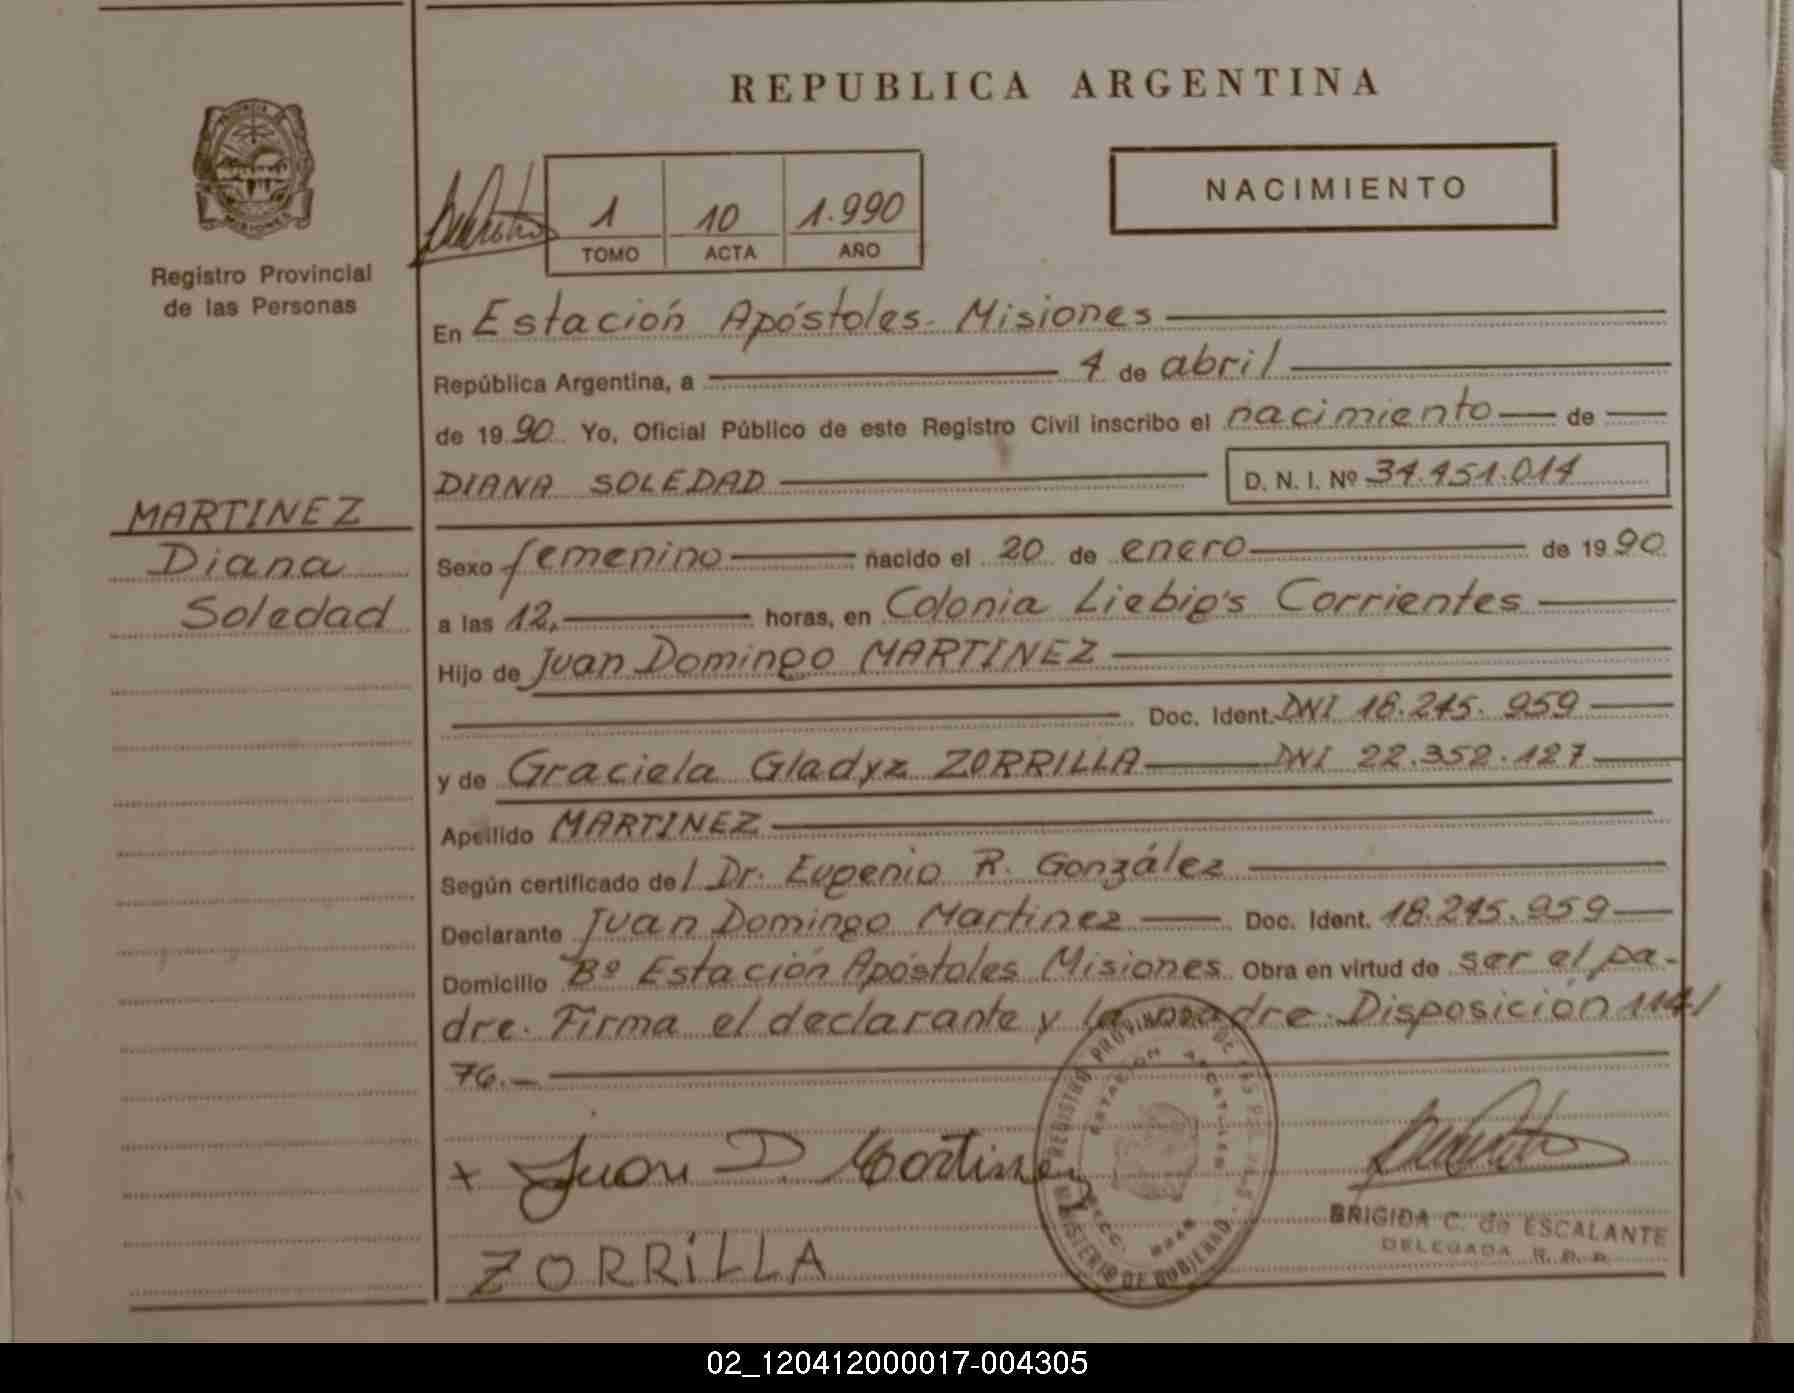 REPUBLICA ARGENTINA
NACIMIENTO
1 10 1.990
TOMO ACTA AÑO
PROVINCIA
MISIONES
Registro Provincial
de las Personas
En Estación Apóstoles. Misiones
República Argentina, a 4 de abril
de 1990 Yo, Oficial Público de este Registro Civil inscribo el nacimiento de
DIANA SOLEDAD D. N. I. Nº 34.451.014
MARTINEZ
Diana
Soledad
Sexo femenino nacido el 20 de enero de 1990
a las 12, horas, en Colonia Liebig's Corrientes
Hijo de Juan Domingo MARTINEZ
Doc. Ident. DNI 18.245.959
y de Graciela Gladyz ZORRILLA DNI 22.352.127
Apellido MARTINEZ
Según certificado de / Dr. Eugenio R. González
Declarante Juan Domingo Martinez Doc. Ident. 18.245.959
Domicilio Bº Estación Apóstoles Misiones Obra en virtud de ser el pa-
dre. Firma el declarante y la madre. Disposición 114/
76.—
REGISTRO PROVINCIAL DE LAS PERSONAS
ESTACION APOSTOLES
MINISTERIO DE GOBIERNO
+ Juan D. Martinez
ZORRiLLA
BRIGIDA C. de ESCALANTE
DELEGADA R. P. P.
02_120412000017-004305